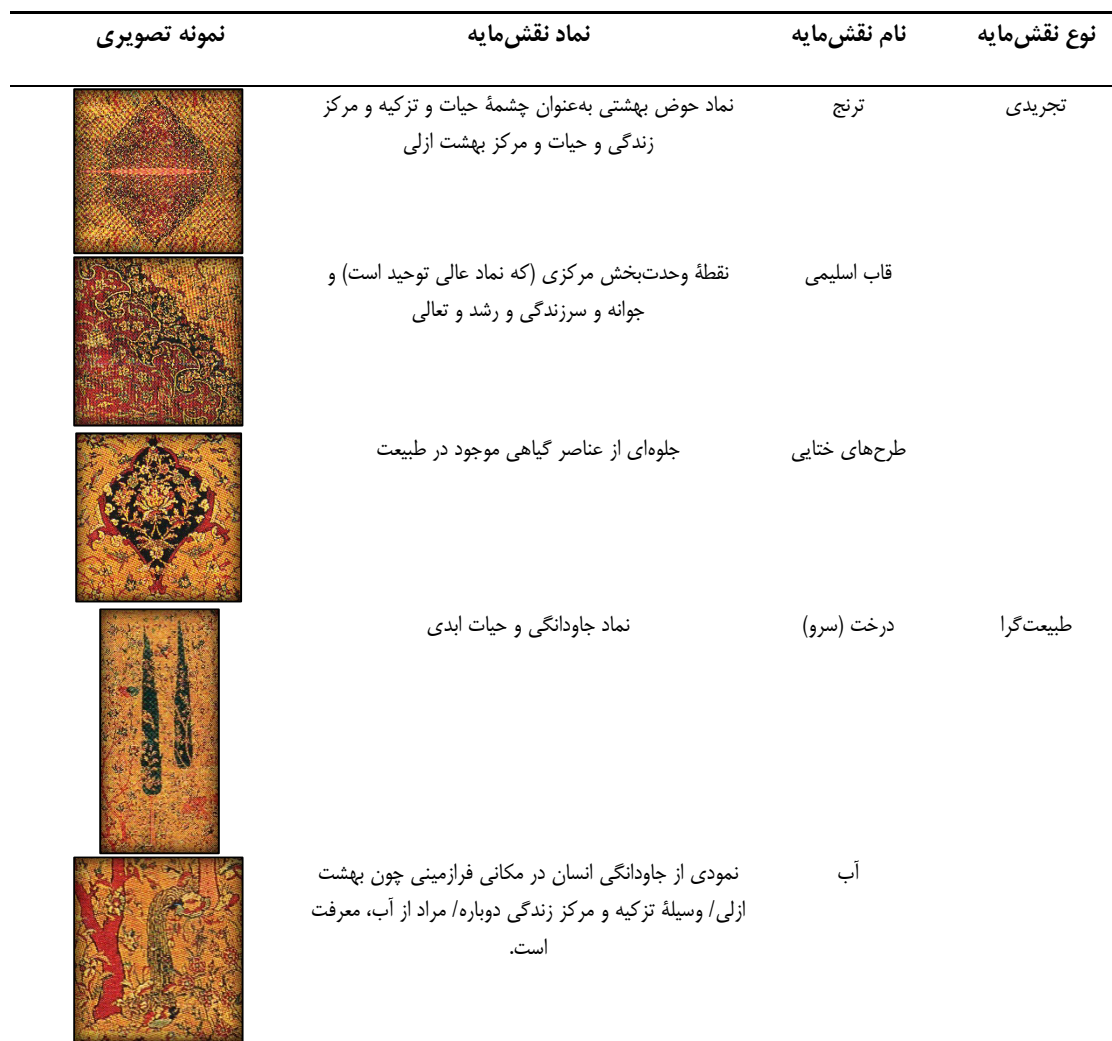 نوع نقش‌مایه نام نقش‌مایه نماد نقش‌مایه نمونه تصویری
تجریدی ترنج نماد حوض بهشتی به‌عنوان چشمۀ حیات و تزکیه و مرکز
زندگی و حیات و مرکز بهشت ازلی
قاب اسلیمی نقطۀ وحدت‌بخش مرکزی (که نماد عالی توحید است) و
جوانه و سرزندگی و رشد و تعالی
طرح‌های ختایی جلوه‌ای از عناصر گیاهی موجود در طبیعت
طبیعت‌گرا درخت (سرو) نماد جاودانگی و حیات ابدی
آب نمودی از جاودانگی انسان در مکانی فرازمینی چون بهشت
ازلی/ وسیلۀ تزکیه و مرکز زندگی دوباره/ مراد از آب، معرفت
است.